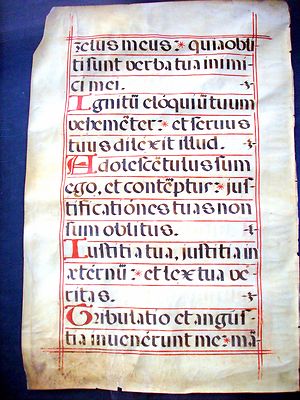 zelus meus: * quia obli
ti sunt verba tua inimi
ci mei.
Ignitũ elóquiũ tuum
vehemẽter: * et seruus
tuus dilexit illud.
Adolescẽtulus sum
ego, et contẽptus: * jus-
tificatiónes tuas non
sum oblitus.
Iustitia tua, justitia in
ætérnũ: * et lex tua ve-
ritas.
Tribulatio et angus-
tia invenérunt me: * mã